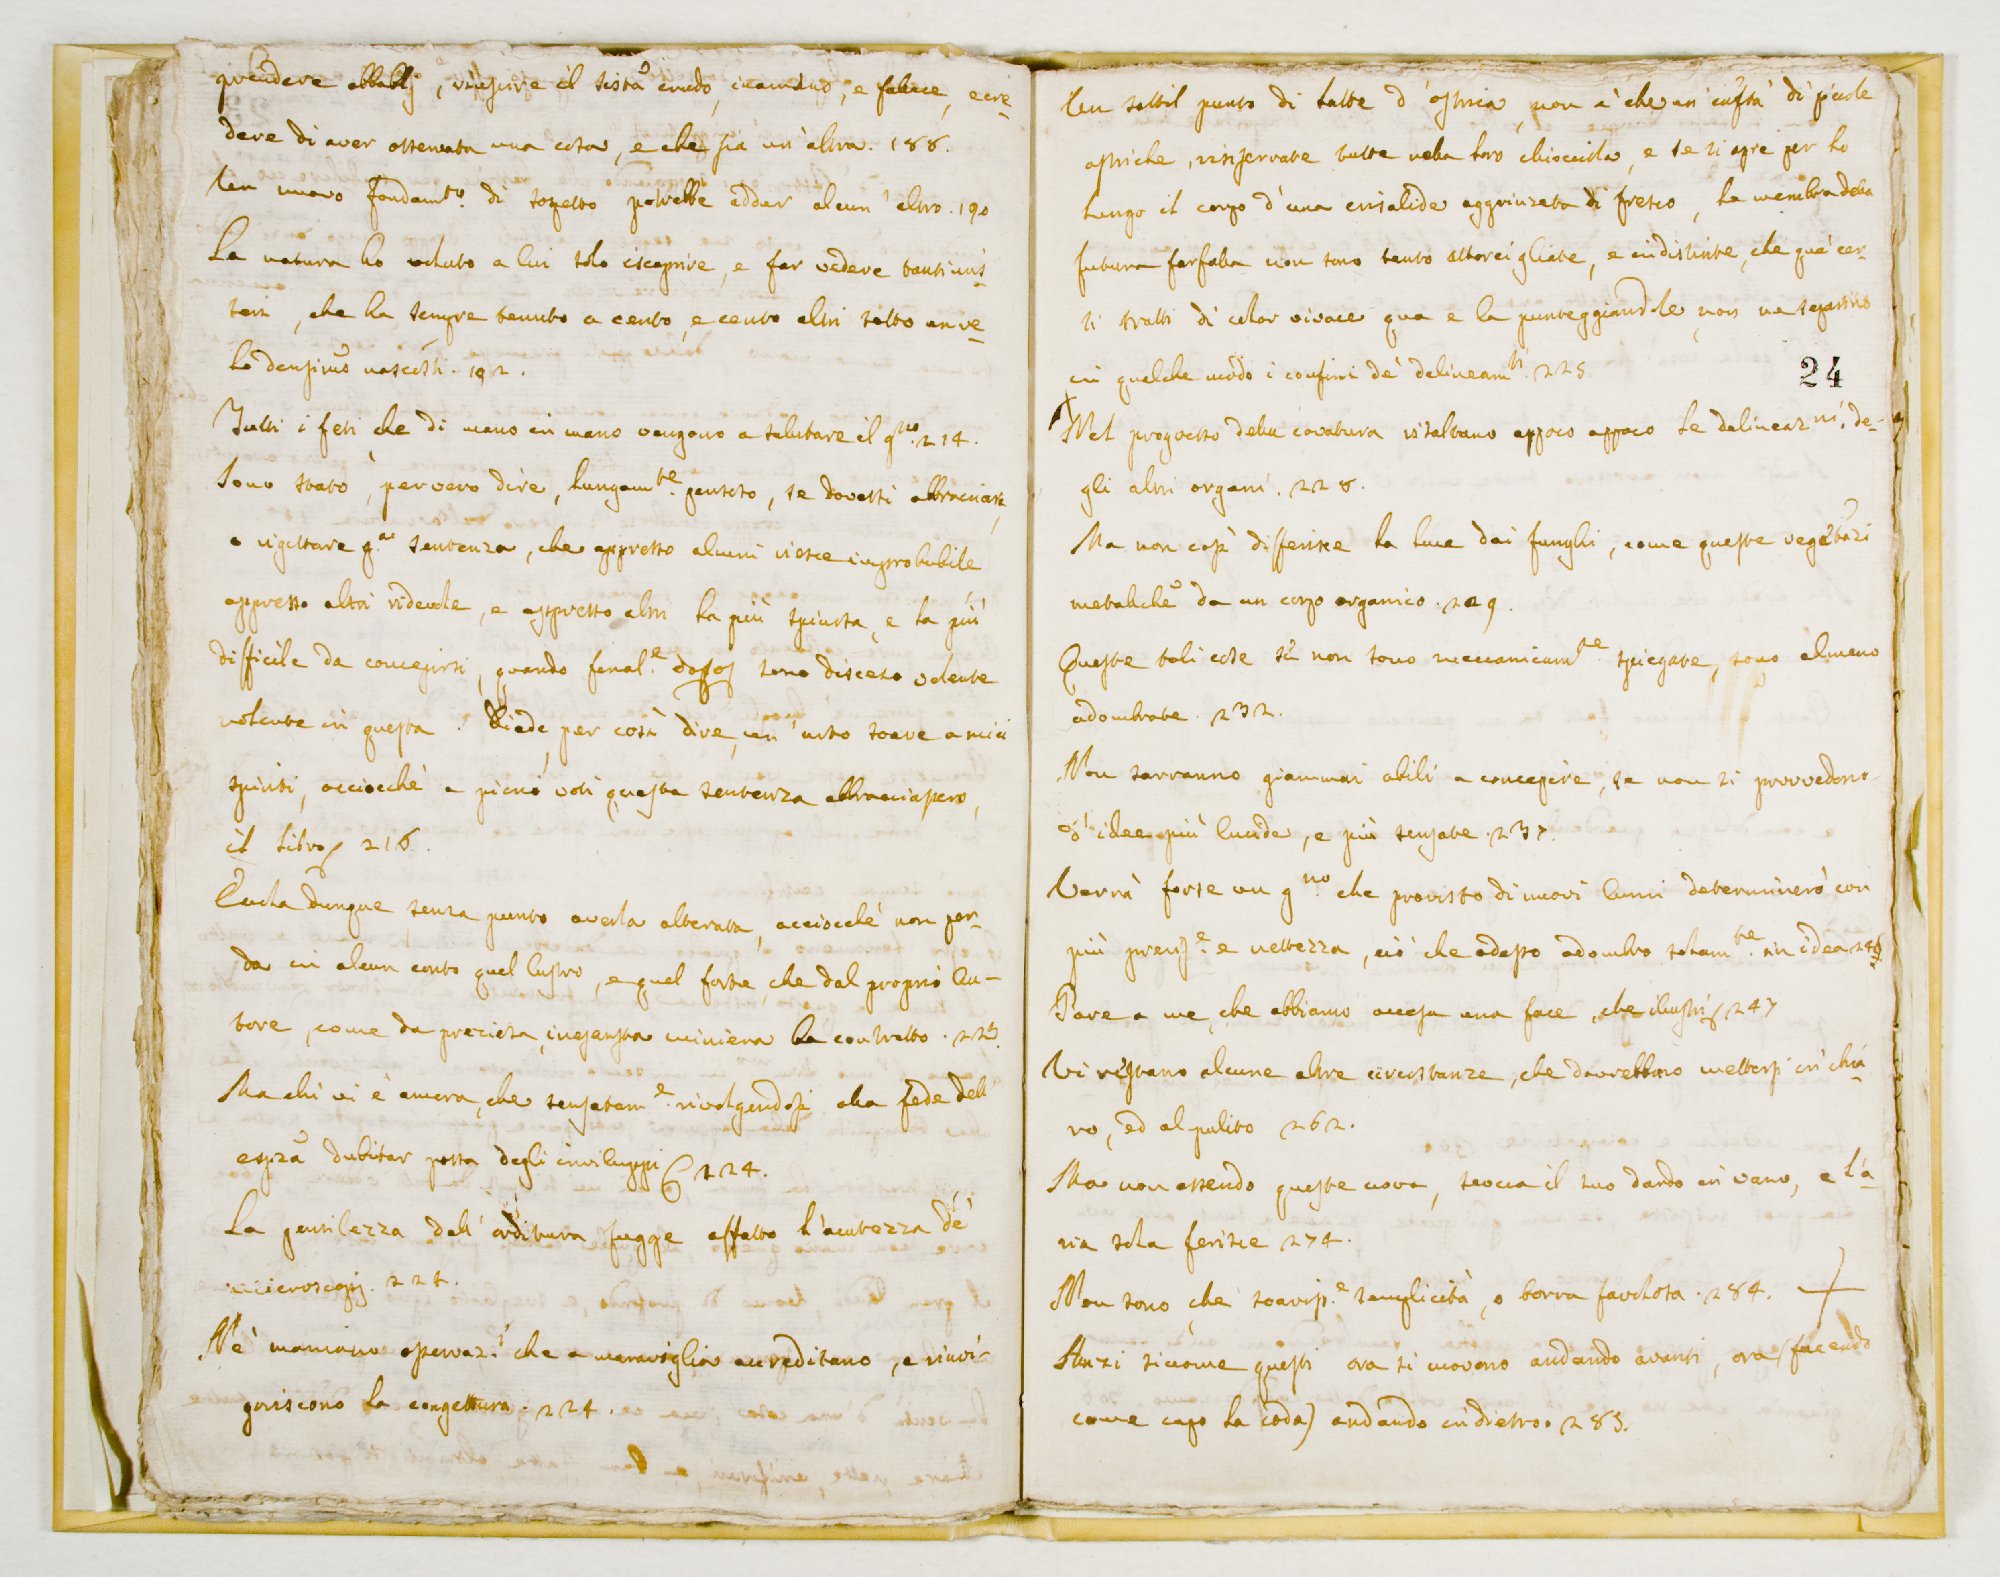 prendere abbablj, riuscire il sistã crudo, incomodo, e fallace, e cre-
dere di aver osservata una cosa, e che sia un'altra. 188.
Un nuovo fondamto. di sospetto potrebbe addur alcun' altro. 190
La natura ha voluto a lui solo iscoprire, e far vedere tanti mis-
teri, che ha sempre tenuto a cento, e cento altri sotto un ve-
lo densimo nascosti. 192.
Tutti i feti, che di mano in mano vengono a salutare il gno. 214.
Sono stato, per vero dire, lungamte. pensoso, se dovessi abbracciare,
o rigettare qa. sentenza, che appresso alcuni riesce improbabile
appresso altri ridevole, e appresso altri la più spinosa, e la più
difficile da concepirsi, quando final.e sono disceso volente
nolente in questa. Diede, per così dire, un' urto soave a miei
spiriti, acciocchè a pieni voti questa sentenza abbracciassero,
il libro 216.
Eccola dunque senza punto averla alterata, acciocchè non per-
da in alcun conto quel lustro, e quel forte, che dal proprio Au-
tore, come da preziosa, inesausta miniera ha contratto. 223.
Ma chi vi è ancora, che sensatam.e rivolgendosi alla fede dell'
espza dubitar possa degli inviluppi 224.
La gentilezza dell' orditura fugge affatto l'acutezza de'
microscopj. 224.
Nè mancano osservaz.i che a maraviglia accreditano, e rinvi-
goriscono la congettura. 224.
Un sottil punto di latte d'ostrica, non è che un' di picole
ostriche, risservate tutte nella loro chiocciola, e se si apre per lo
lungo il corpo d'una crisalide aggrinzata di fresco, le membra della
futura farfalla non sono tanto attorcigliate, e indistinte, che que' cer-
ti tratti di color vivace qua e la punteggiandole, non ne segnino
in qualche modo i confini de' delineamti. 225.
24
Nel progresso della covatura risaltano appoco appoco le delineazni. de-
gli altri organi. 228.
Ma non così differisce la luce dai funghi, come queste vegetazi
metaliche da un corpo organico. 229.
Queste tali cose se non sono meccanicamte. spiegate, sono almeno
adombrate. 232.
Non sarranno giammai abili a concepire, se non si provvedono
d' idee più lucide, e più sensate. 237.
Verrà forse un gno. che provisto di nuovi lumi determinerò con
più precis.e e nettezza, ciò che adesso adombro solamte. in idea 246
Pare a me, che abbiamo accesa una face, che ilustri 247
Vi restano alcune altre circostanze, che dovrebbono mettersi in chia-
ro, ed al pulito 262.
Ma non essendo queste uova, scocca il suo dardo in vano, e l'a-
ria sola ferisce 274.
Non sono che soavis.e semplicità, o borra favolosa. 284.
Anzi sicome questi ora si movono andando avanti, ora (facendo
come capo la coda) andando indietro. 285.